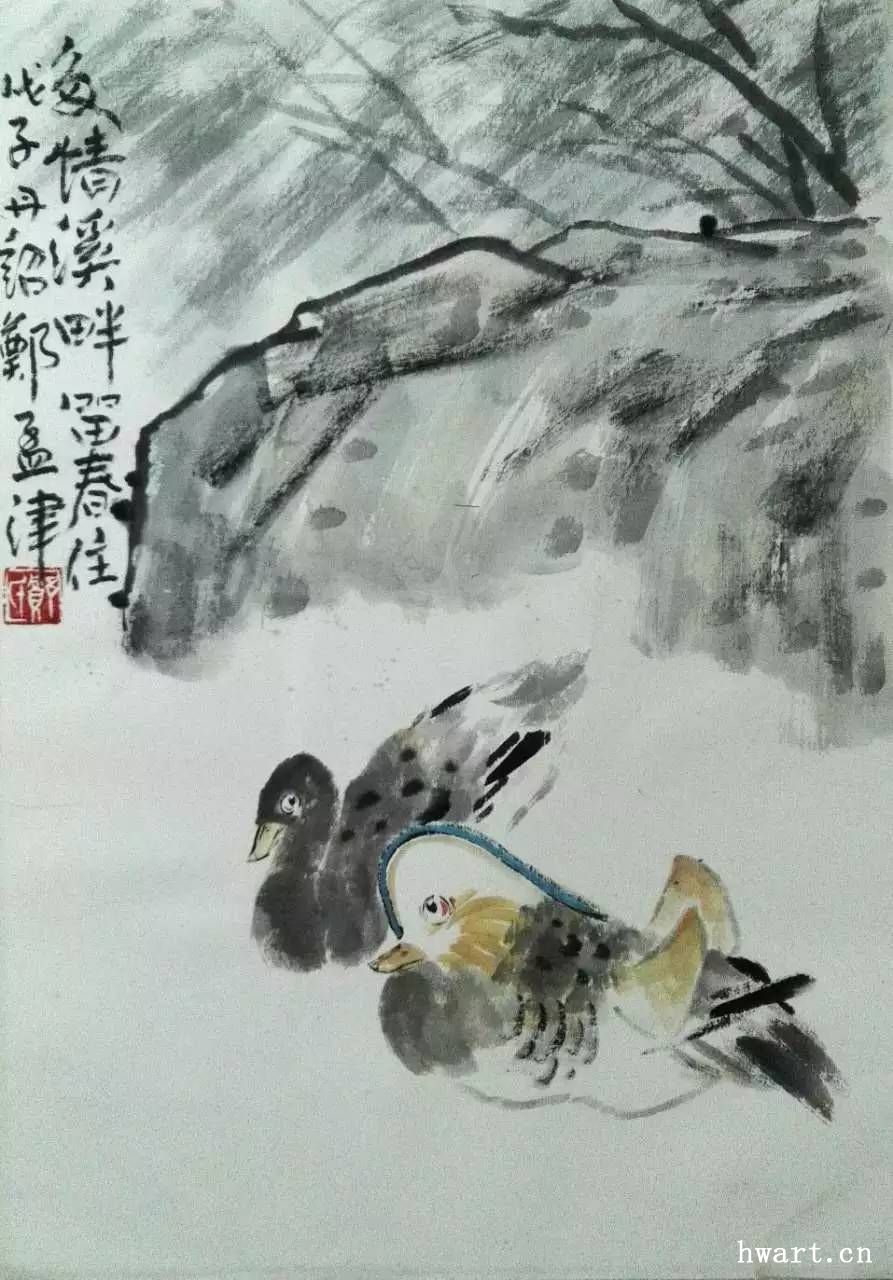 多情溪畔留春住
戊子丹詔鄭孟津
hwart.cn